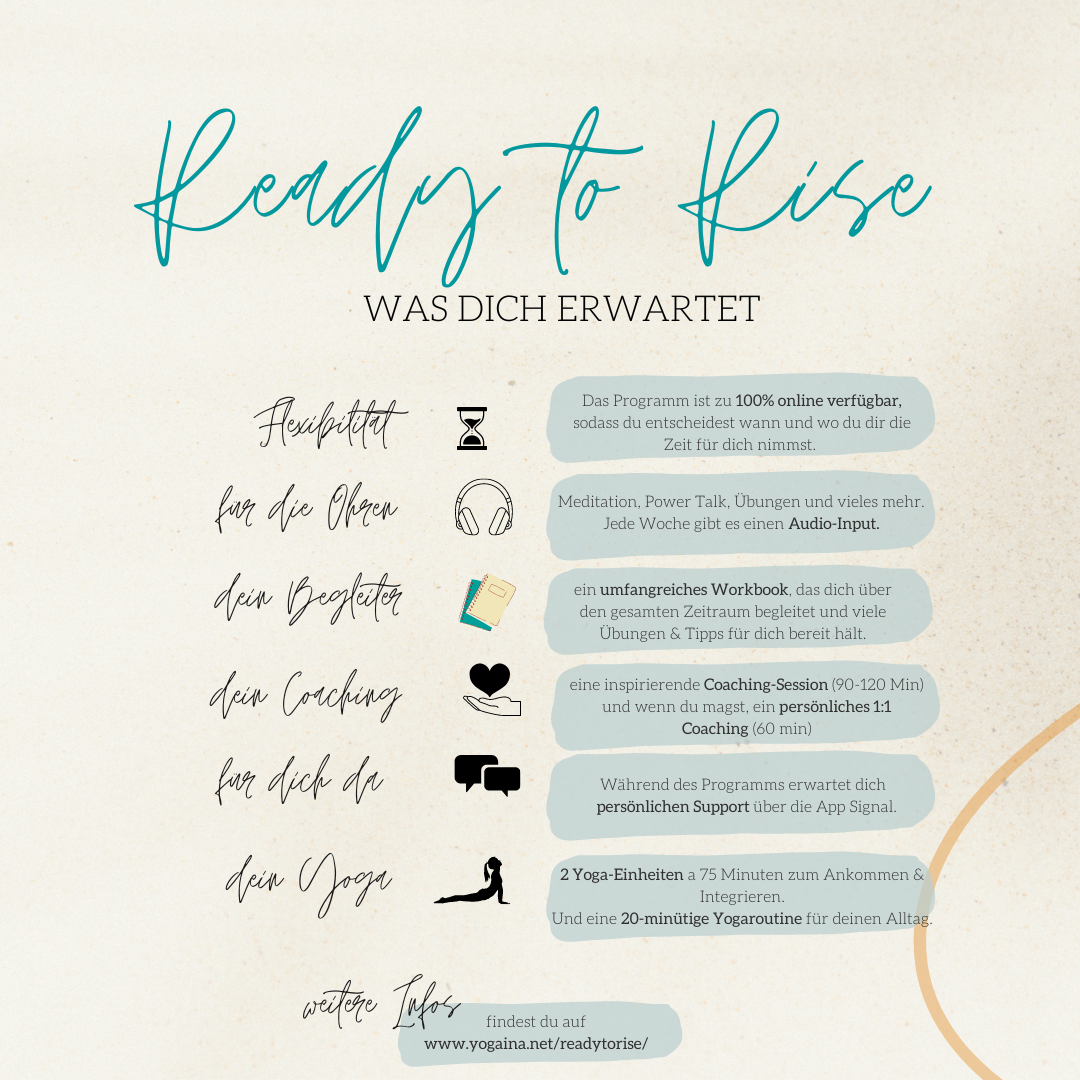 Ready to Rise
WAS DICH ERWARTET
Flexibilität
Das Programm ist zu 100% online verfügbar,
sodass du entscheidest wann und wo du dir die
Zeit für dich nimmst.
für die Ohren
Meditation, Power Talk, Übungen und vieles mehr.
Jede Woche gibt es einen Audio-Input.
dein Begleiter
ein umfangreiches Workbook, das dich über
den gesamten Zeitraum begleitet und viele
Übungen & Tipps für dich bereit hält.
dein Coaching
eine inspirierende Coaching-Session (90-120 Min)
und wenn du magst, ein persönliches 1:1
Coaching (60 min)
für dich da
Während des Programms erwartet dich
persönlichen Support über die App Signal.
dein Yoga
2 Yoga-Einheiten a 75 Minuten zum Ankommen &
Integrieren.
Und eine 20-minütige Yogaroutine für deinen Alltag.
weitere Infos
findest du auf
www.yogaina.net/readytorise/